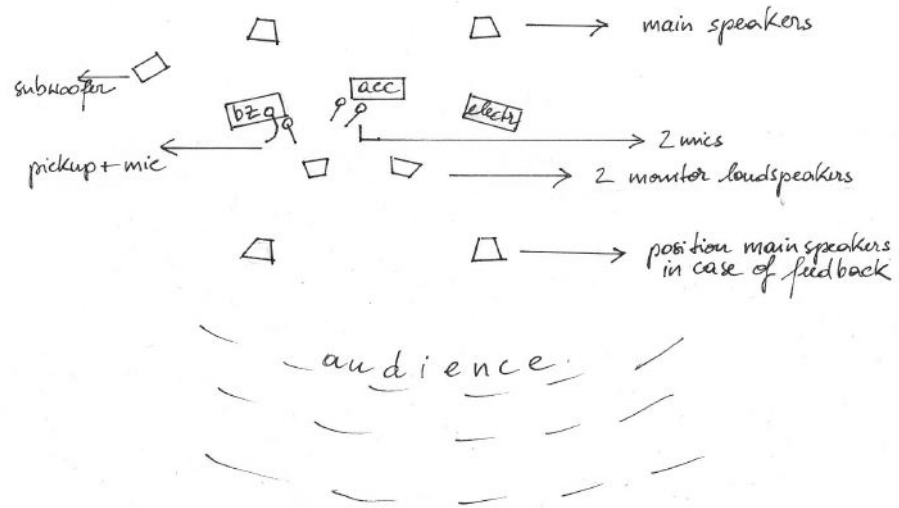 main speakers
subwoofer
bz
acc
electr
2 mics
pickup + mic
2 monitor loudspeakers
position main speakers
in case of feedback
audience.